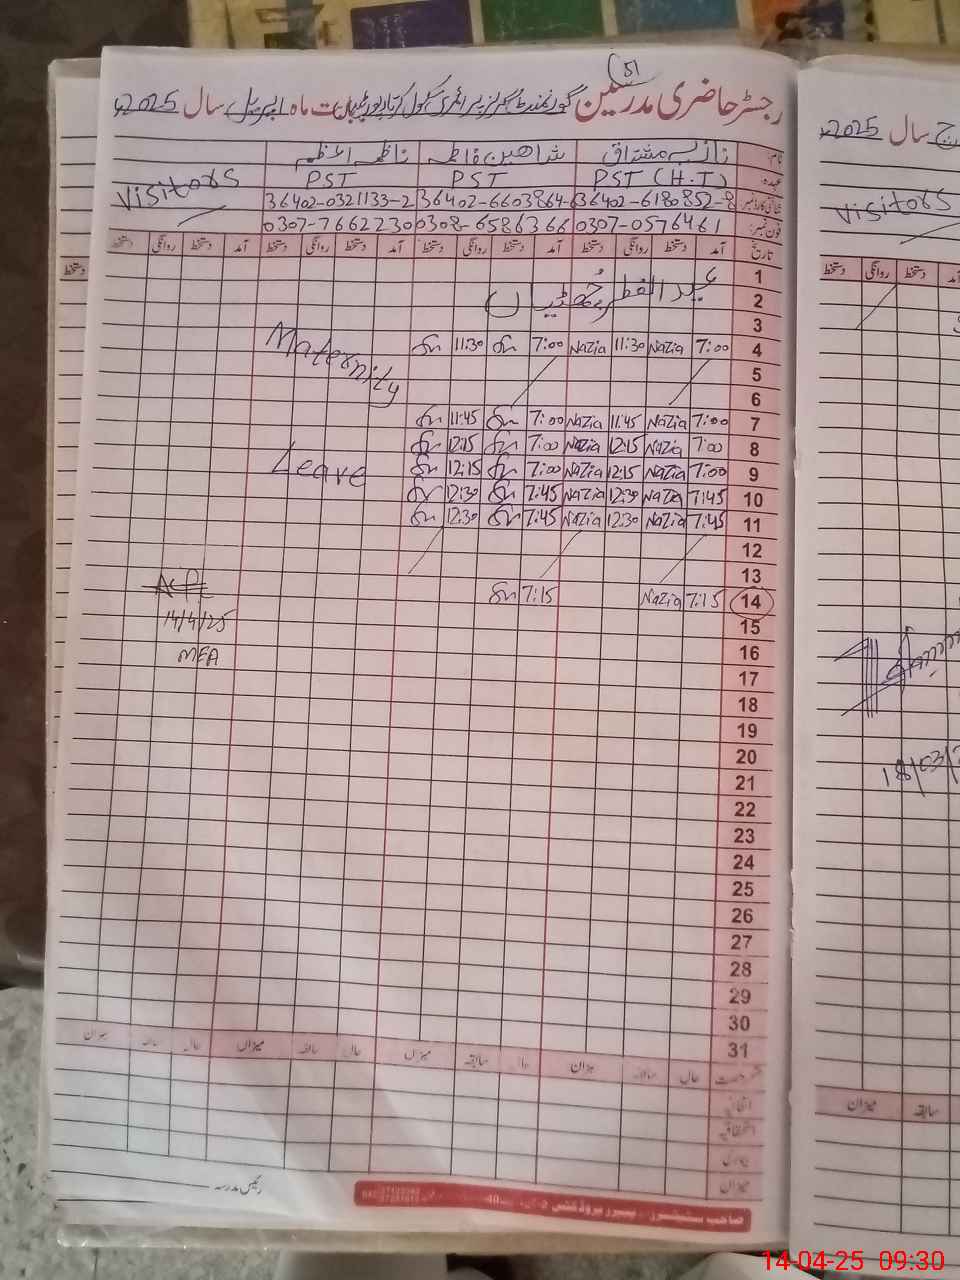 51
رجسٹر حاضری مدرسین گورنمنٹ گرلز پرائمری سکول بابت ماہ اپریل سال 2025ء
نام: نازیہ مشتاق شاہین فاطمہ
عہدہ: PST (H.T) PST PST Visitors
شناختی کارڈ نمبر: 36402-6180852-8 36402-6603864-6 36402-0321133-2
فون نمبر: 0307-0576461 0308-6586366 0307-7662230
تاریخ آمد دستخط روانگی دستخط آمد دستخط روانگی دستخط آمد دستخط روانگی دستخط آمد دستخط روانگی دستخط
1
2 عید الفطر چھٹیاں
3
4 7:00 Nazia 11:30 Nazia 7:00 Sn 11:30 Sn Maternity
5
6
7 7:00 Nazia 11:45 Nazia 7:00 Sn 11:45 Sn
8 7:00 Nazia 12:15 Nazia 7:00 Sn 12:15 Sn
9 7:00 Nazia 12:15 Nazia 7:00 Sn 12:15 Sn Leave
10 7:45 Nazia 12:30 Nazia 7:45 Sn 12:30 Sn
11 7:45 Nazia 12:30 Nazia 7:45 Sn 12:30 Sn
12
13
14 7:15 Nazia 7:15 Sn
14/4/25
15
16 MEA
17
18
19
20
21
22
23
24
25
26
27
28
29
30
31
رخصت حال سابقہ میزان حال سابقہ میزان حال سابقہ میزان حال سابقہ میزان
اتفاقیہ
استحقاقیہ
بیماری
میزان
رئیس مدرسہ
سال 2025ء
Visitors
دستخط روانگی دستخط آمد
18/03/2
میزان سابقہ
14-04-25 09:30